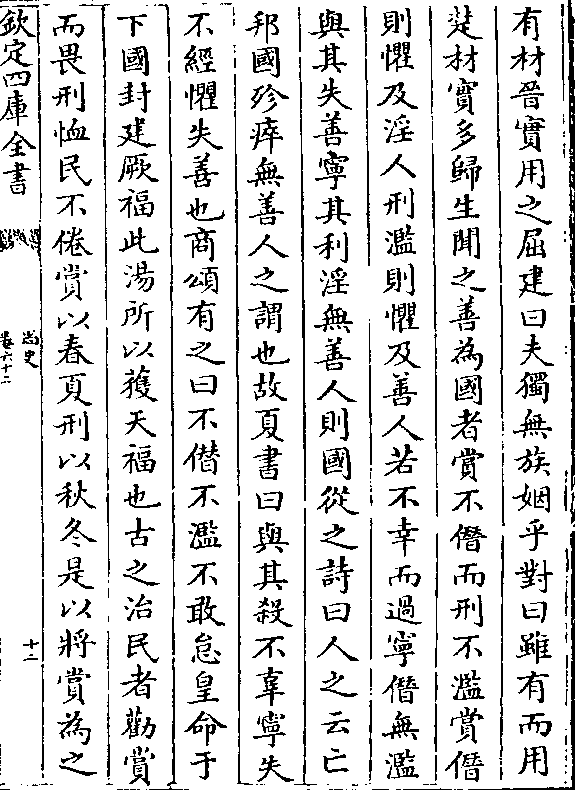 有材晉實用之屈建曰夫獨無族姻乎對曰雖有而用
楚材實多歸生聞之善為國者賞不僭而刑不濫賞僭
則懼及淫人刑濫則懼及善人若不幸而過寧僭無濫
與其失善寧其利淫無善人則國從之詩曰人之云亡
邦國殄瘁無善人之謂也故夏書曰與其殺不辜寧失
不經懼失善也商頌有之曰不僭不濫不敢怠皇命于
下國封建厥福此湯所以獲天福也古之治民者勸賞
而畏刑恤民不倦賞以春夏刑以秋冬是以將賞為之
欽定四庫全書
尚史
卷六十二
十二